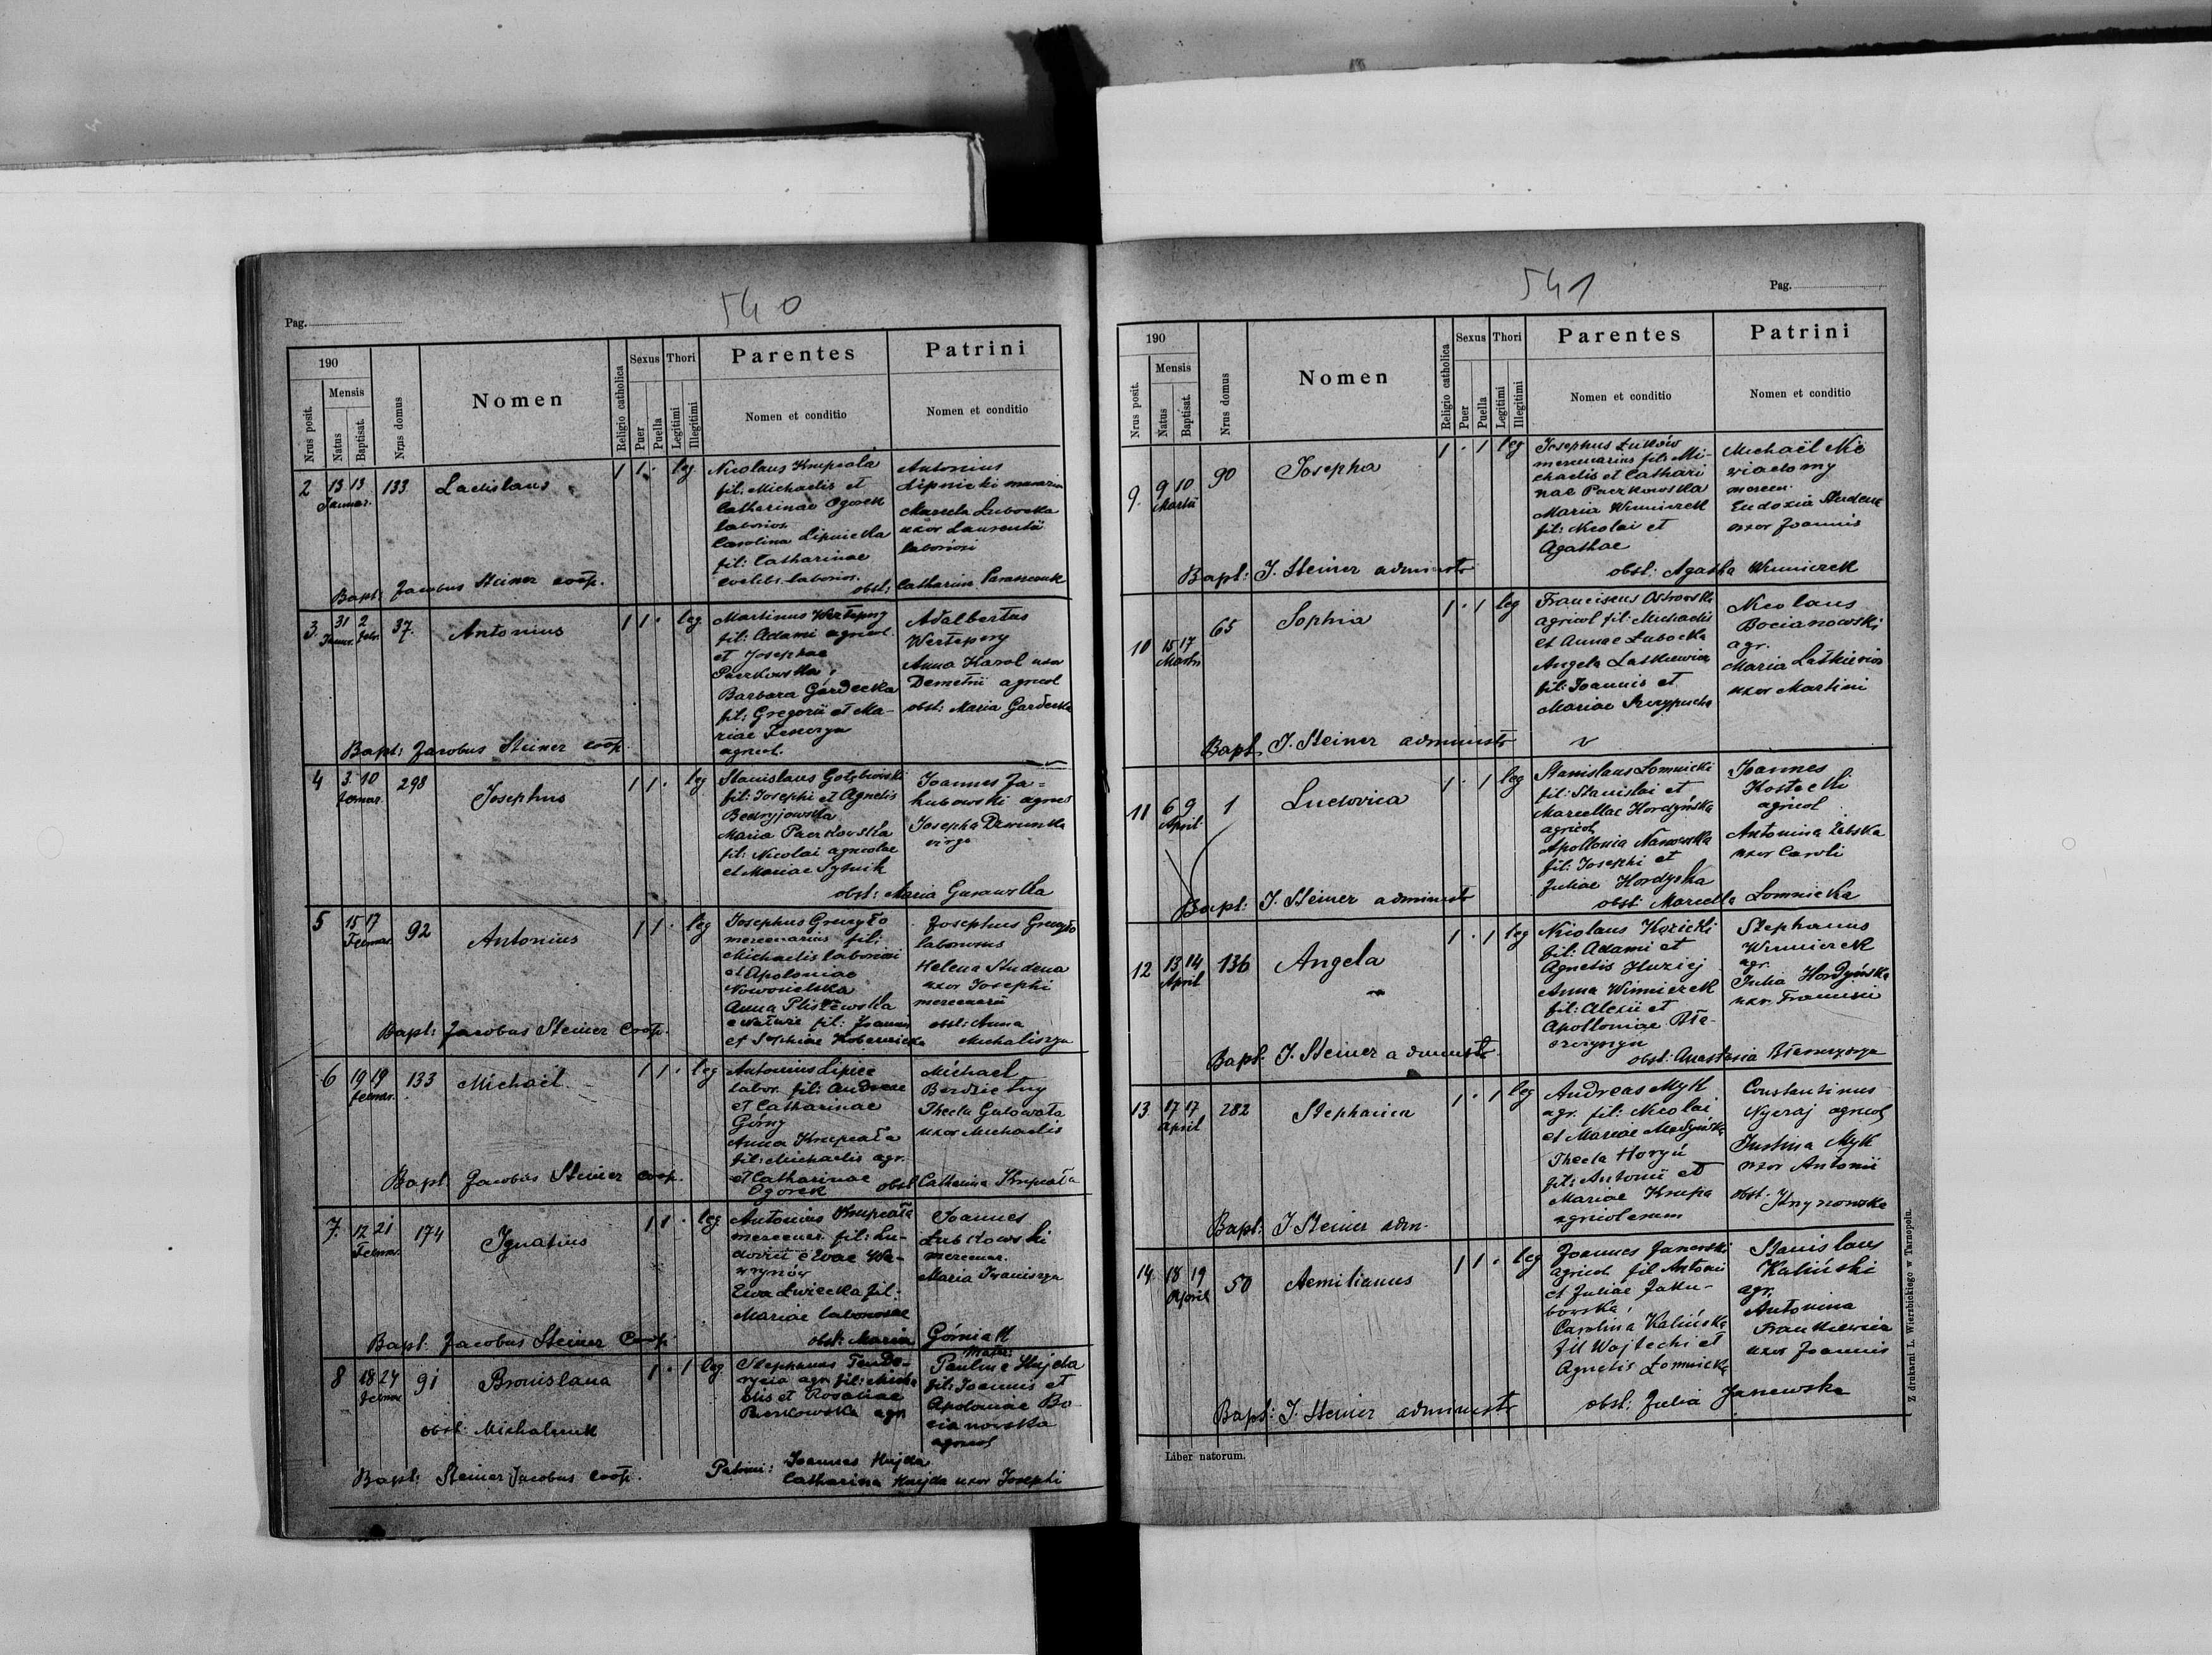 540
Pag.
190
Nrus posit.
Mensis
Natus
Baptisat.
Nrus domus
Nomen
Religio catholica
Sexus
Puer
Puella
Thori
Legitimi
Illegitimi
Parentes
Nomen et conditio
Patrini
Nomen et conditio
2 13 13 Januar. 133 Ladislaus 1 1 · leg
Nicolaus Krupiała
fil: Michaelis et
Catharinae Ogorek
laborios.
Carolina Lipnicka
fil: Catharinae
coelib. laborios.
Antonius
Lipnicki
Marcela Lubocka
uxor Laurentii
laboriosi
obst: Catharina
Bapt: Jacobus Steiner coop.
3. 31 Januar. 2 Febr. 37. Antonius 1 1 · leg
Martinus Wertepny
fil: Adami agricol.
et Josephae
Paczkowska,
Barbara Gardecka
fil: Gregorii et Ma-
riae
agricol.
Adalbertus
Wertepny
Anna Karol uxor
Demetrii agricol
obst: Maria Gardecka
Bapt: Jacobus Steiner coop.
4 3 10 Februar. 298 Josephus 1 1 · leg
Stanislaus Gołębiowski
fil: Josephi et Agnetis
Bedryjowska
Maria Paczkowska
fil: Nicolai agricolae
et Mariae Sytnik
Joannes Ja=
kubowski agricol
Josepha
virgo
obst: Maria Gurawska
5 15 17 Februar. 92 Antonius 1 1 · leg
Josephus Gruszło
mercenarius fil:
Michaelis laboriosi
et Apoloniae
Nowosielska
Anna
fil: Joannis
et Sophiae
Josephus Gruszło
laboriosus
Helena Studena
uxor Josephi
mercenarii
obst: Anna
Michaliszyn
Bapt: Jacobus Steiner Coop.
6 19 19 Februar. 133 Michaël 1 1 · leg
Antonius Lipiec
labor. fil: Andreae
et Catharinae
Górny
Anna Krupiała
fil: Michaelis agr.
et Catharinae
Ogorek
Michael
Bezdzietny
Thecla Gulowata
uxor Michaelis
obst Catharina Krupiała
Bapt Jacobus Steiner coop.
7. 12 21 Februar. 174 Ignatius 1 1 · leg
Antonius Krupiała
mercenar. fil: Lu-
dovici et Evae Wa-
wrynów
Eva Zwiecka fil:
Mariae laboriosae
Joannes
Lubkowski
mercenar.
Maria Iwaniszyn
obst: Maria Górniak
Bapt: Jacobus Steiner Coop:
8 18 24 Februar 91 Bronislava 1 · 1 leg.
Stephanus
agr. fil: Micha
elis et Rosaliae
Paczkowska agr
Mater:
Paulina Hujda
fil: Joannis et
Apoloniae Bo-
cianowska
agricol
obst: Michalczuk
Patrini: Joannes Hujda
Catharina Hujda uxor Josephi
Bapt: Steiner Jacobus coop.
541
Pag.
190
Nrus posit.
Mensis
Natus
Baptisat.
Nrus domus
Nomen
Religio catholica
Sexus
Puer
Puella
Thori
Legitimi
Illegitimi
Parentes
Nomen et conditio
Patrini
Nomen et conditio
9. 9 10 Martii 90 Josepha 1 · 1 leg
Josephus Łuków
mercenarius fil: Mi-
chaelis et Cathari
nae Paczkowska
Maria Winniczek
fil: Nicolai et
Agathae
Michaël Nie
wiadomy
mercen.
Eudoxia
uxor Joannis
obst: Agatha Winniczek
Bapt: J. Steiner administr
10 15 17 Martii 65 Sophia 1 · 1 leg
Franciscus Ostrowski
agricol fil: Michaelis
et Annae Lubocka
Angela Latkiewicz
fil: Joannis et
Mariae
Nicolaus
Bocianowski
agr.
Maria Latkiewicz
uxor Martini
Bapt. J. Steiner administr
11 6 9 April 1 Ludovica 1 · 1 leg
Stanislaus Łomnicki
fil: Stanislai et
Marcellae Hordyńska
agricol
Apollonia
fil: Josephi et
Juliae Hordyska
Joannes
Kostecki
agricol
Antonina
uxor Caroli
obst: Marcella Łomnicka
Bapt: J. Steiner administr
12 13 14 April 136 Angela 1 · 1 leg
Nicolaus
fil: Adami et
Agnetis
Anna Winniczek
fil: Alexii et
Apolloniae
Stephanus
Winniczek
agr.
Julia Hordyńska
uxor Francisci
obst: Anastasia
Bapt. J. Steiner administr.
13 17 17 April 282 Stephania 1 · 1 leg
Andreas Myk
agr. fil: Nicolai
et Mariae Medyńska
Thecla Horyń
fil: Antonii et
Mariae Krupa
agricolarum
Constantinus
Nyeraj agricol
Justina Myk
uxor Antonii
obst.
Bapt: J. Steiner adm.
14. 18 19 Aprilis 50 Aemilianus 1 1 · leg
Joannes Janowski
agricol. fil Antonii
et Juliae Jaku-
bowska,
Carolina Kalińska
fil Wojtechi et
Agnetis Łomnicka
Stanislaus
Kaliński
agr.
Antonina
Frankiewicz
uxor Joannis
obst: Julia Janowska
Bapt: J. Steiner administr
Liber natorum.
Z drukarni L. Wierzbickiego w Tarnopolu.